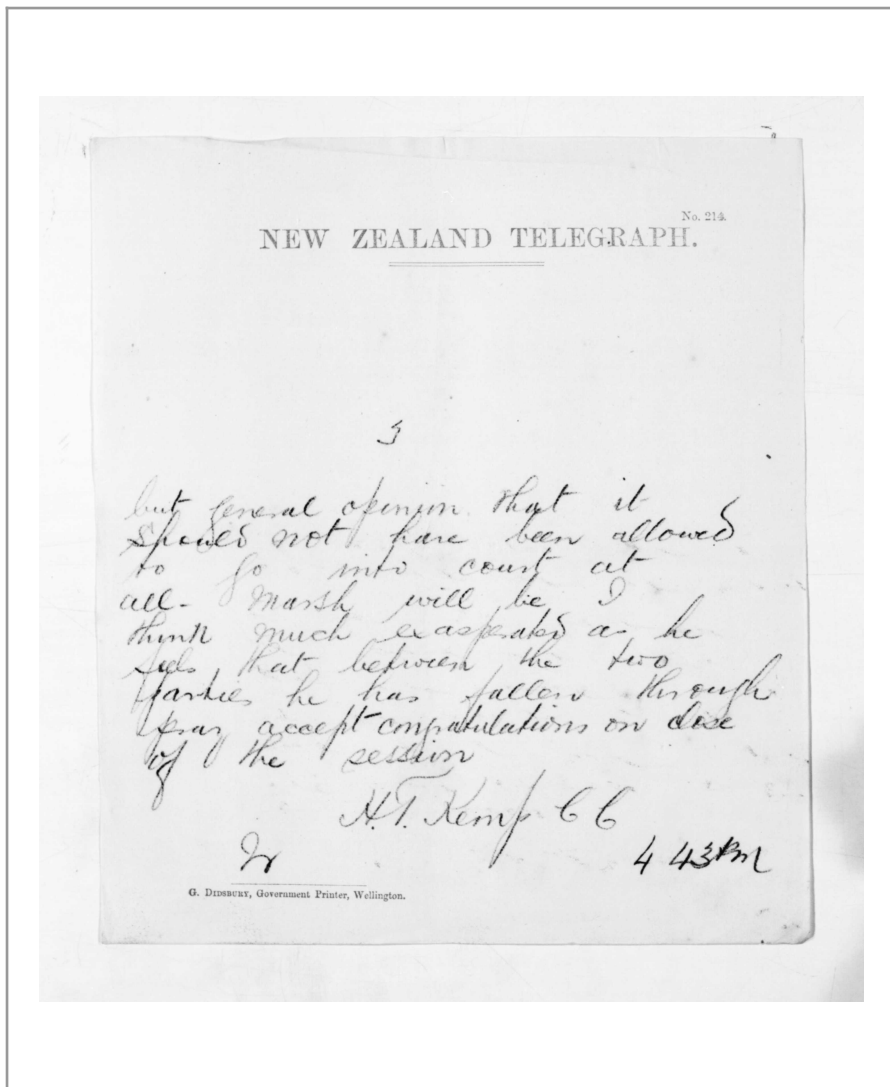 No. 214.
NEW ZEALAND TELEGRAPH.
3
but general opinion that it
should not have been allowed
to go into court at
all - Marsh will be I
think much exasperated as he
sees that between the two
parties he has fallen through
pray accept congratulations on close
of the session
H. T. Kemp C C
4 43 PM
G. DIDSBURY, Government Printer, Wellington.